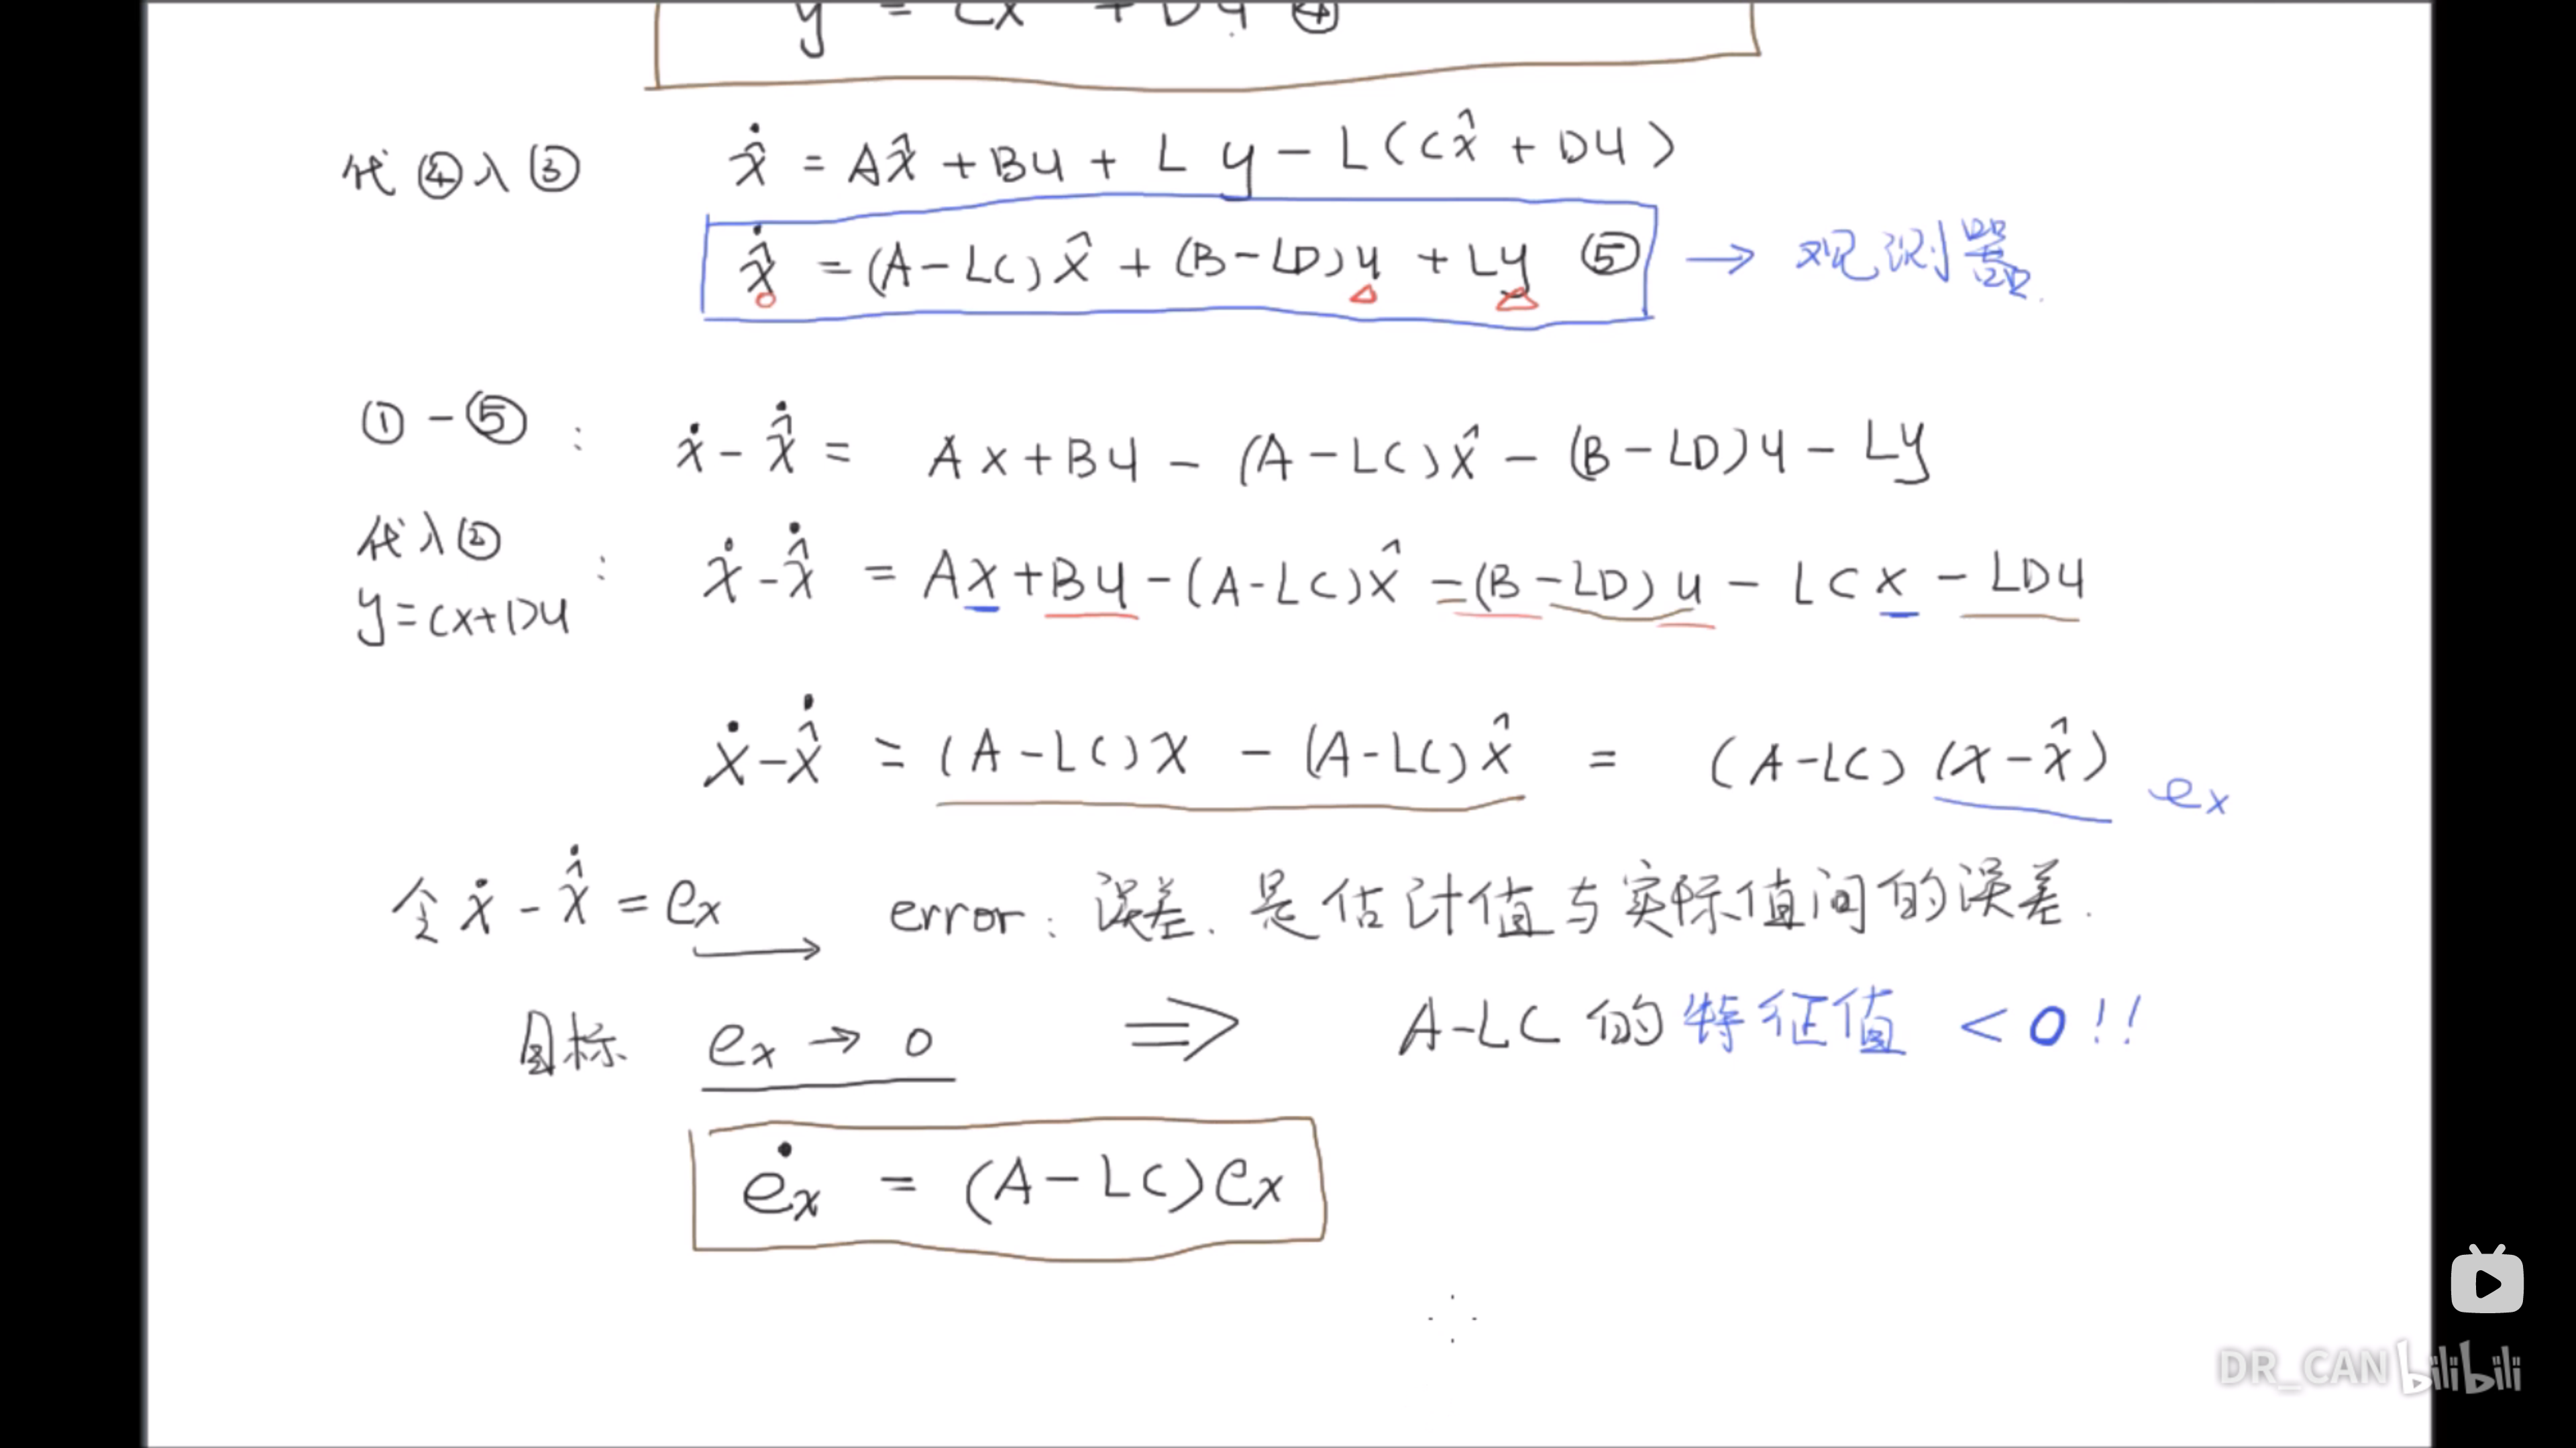 y = Cx + Du ④
代④入③ \dot{\hat{x}} = A\hat{x} + Bu + L y - L(C\hat{x} + Du)
\dot{\hat{x}} = (A-LC)\hat{x} + (B-LD)u + Ly ⑤ → 观测器.
①-⑤: \dot{x} - \dot{\hat{x}} = Ax + Bu - (A-LC)\hat{x} - (B-LD)u - Ly
代入②
y = Cx+Du : \dot{x} - \dot{\hat{x}} = Ax + Bu - (A-LC)\hat{x} - (B-LD)u - LCx - LDu
\dot{x} - \dot{\hat{x}} = (A-LC)x - (A-LC)\hat{x} = (A-LC)(x-\hat{x}) e_x
令 \dot{x} - \dot{\hat{x}} = e_x → error: 误差. 是估计值与实际值间的误差.
目标 e_x → 0 ⇒ A-LC 的特征值 < 0!!
\dot{e}_x = (A-LC)e_x
DR_CAN bilibili